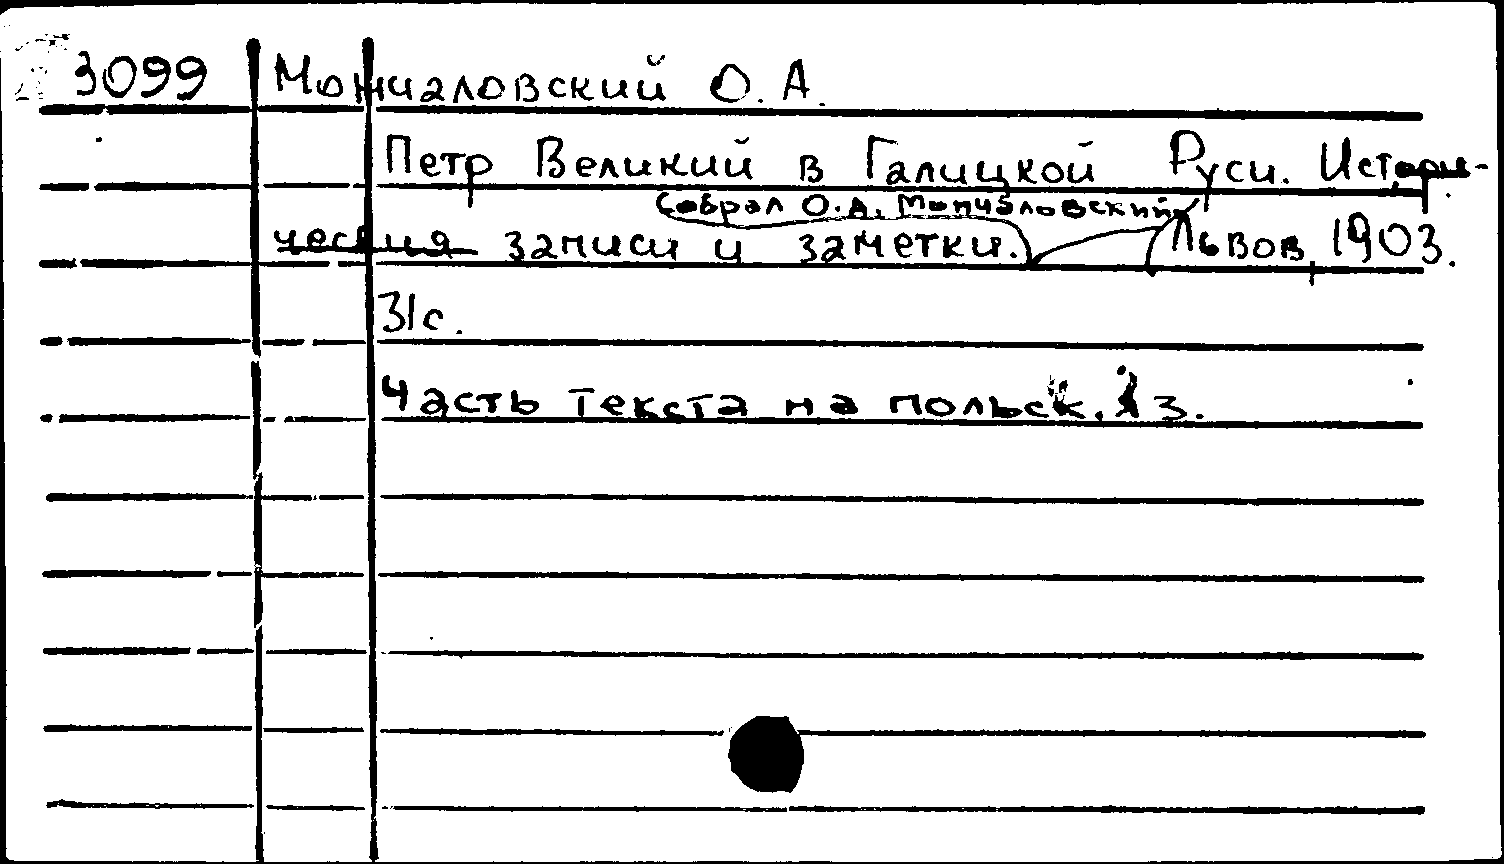 3099 Мончаловский О. А.
Петр Великий в Галицкой Руси. Истори-
ческия записи и заметки. Собрал О. А. Мончаловский Львов, 1903.
31с.
Часть текста на польск. яз.